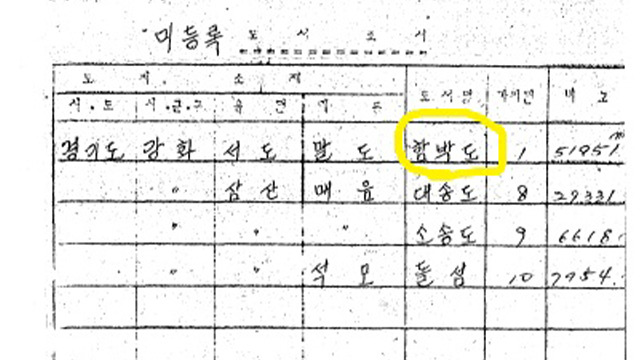 미등록 도서 조서
도지 소재
시.도 시.군.구 읍면 리동 도서명 가지번 비고
경기도 강화 서도 말도 함박도 1 51951㎡
〃 삼산 매음 대송도 8 29.331
〃 〃 〃 소송도 9 6618
〃 〃 석모 돌섬 10 7954